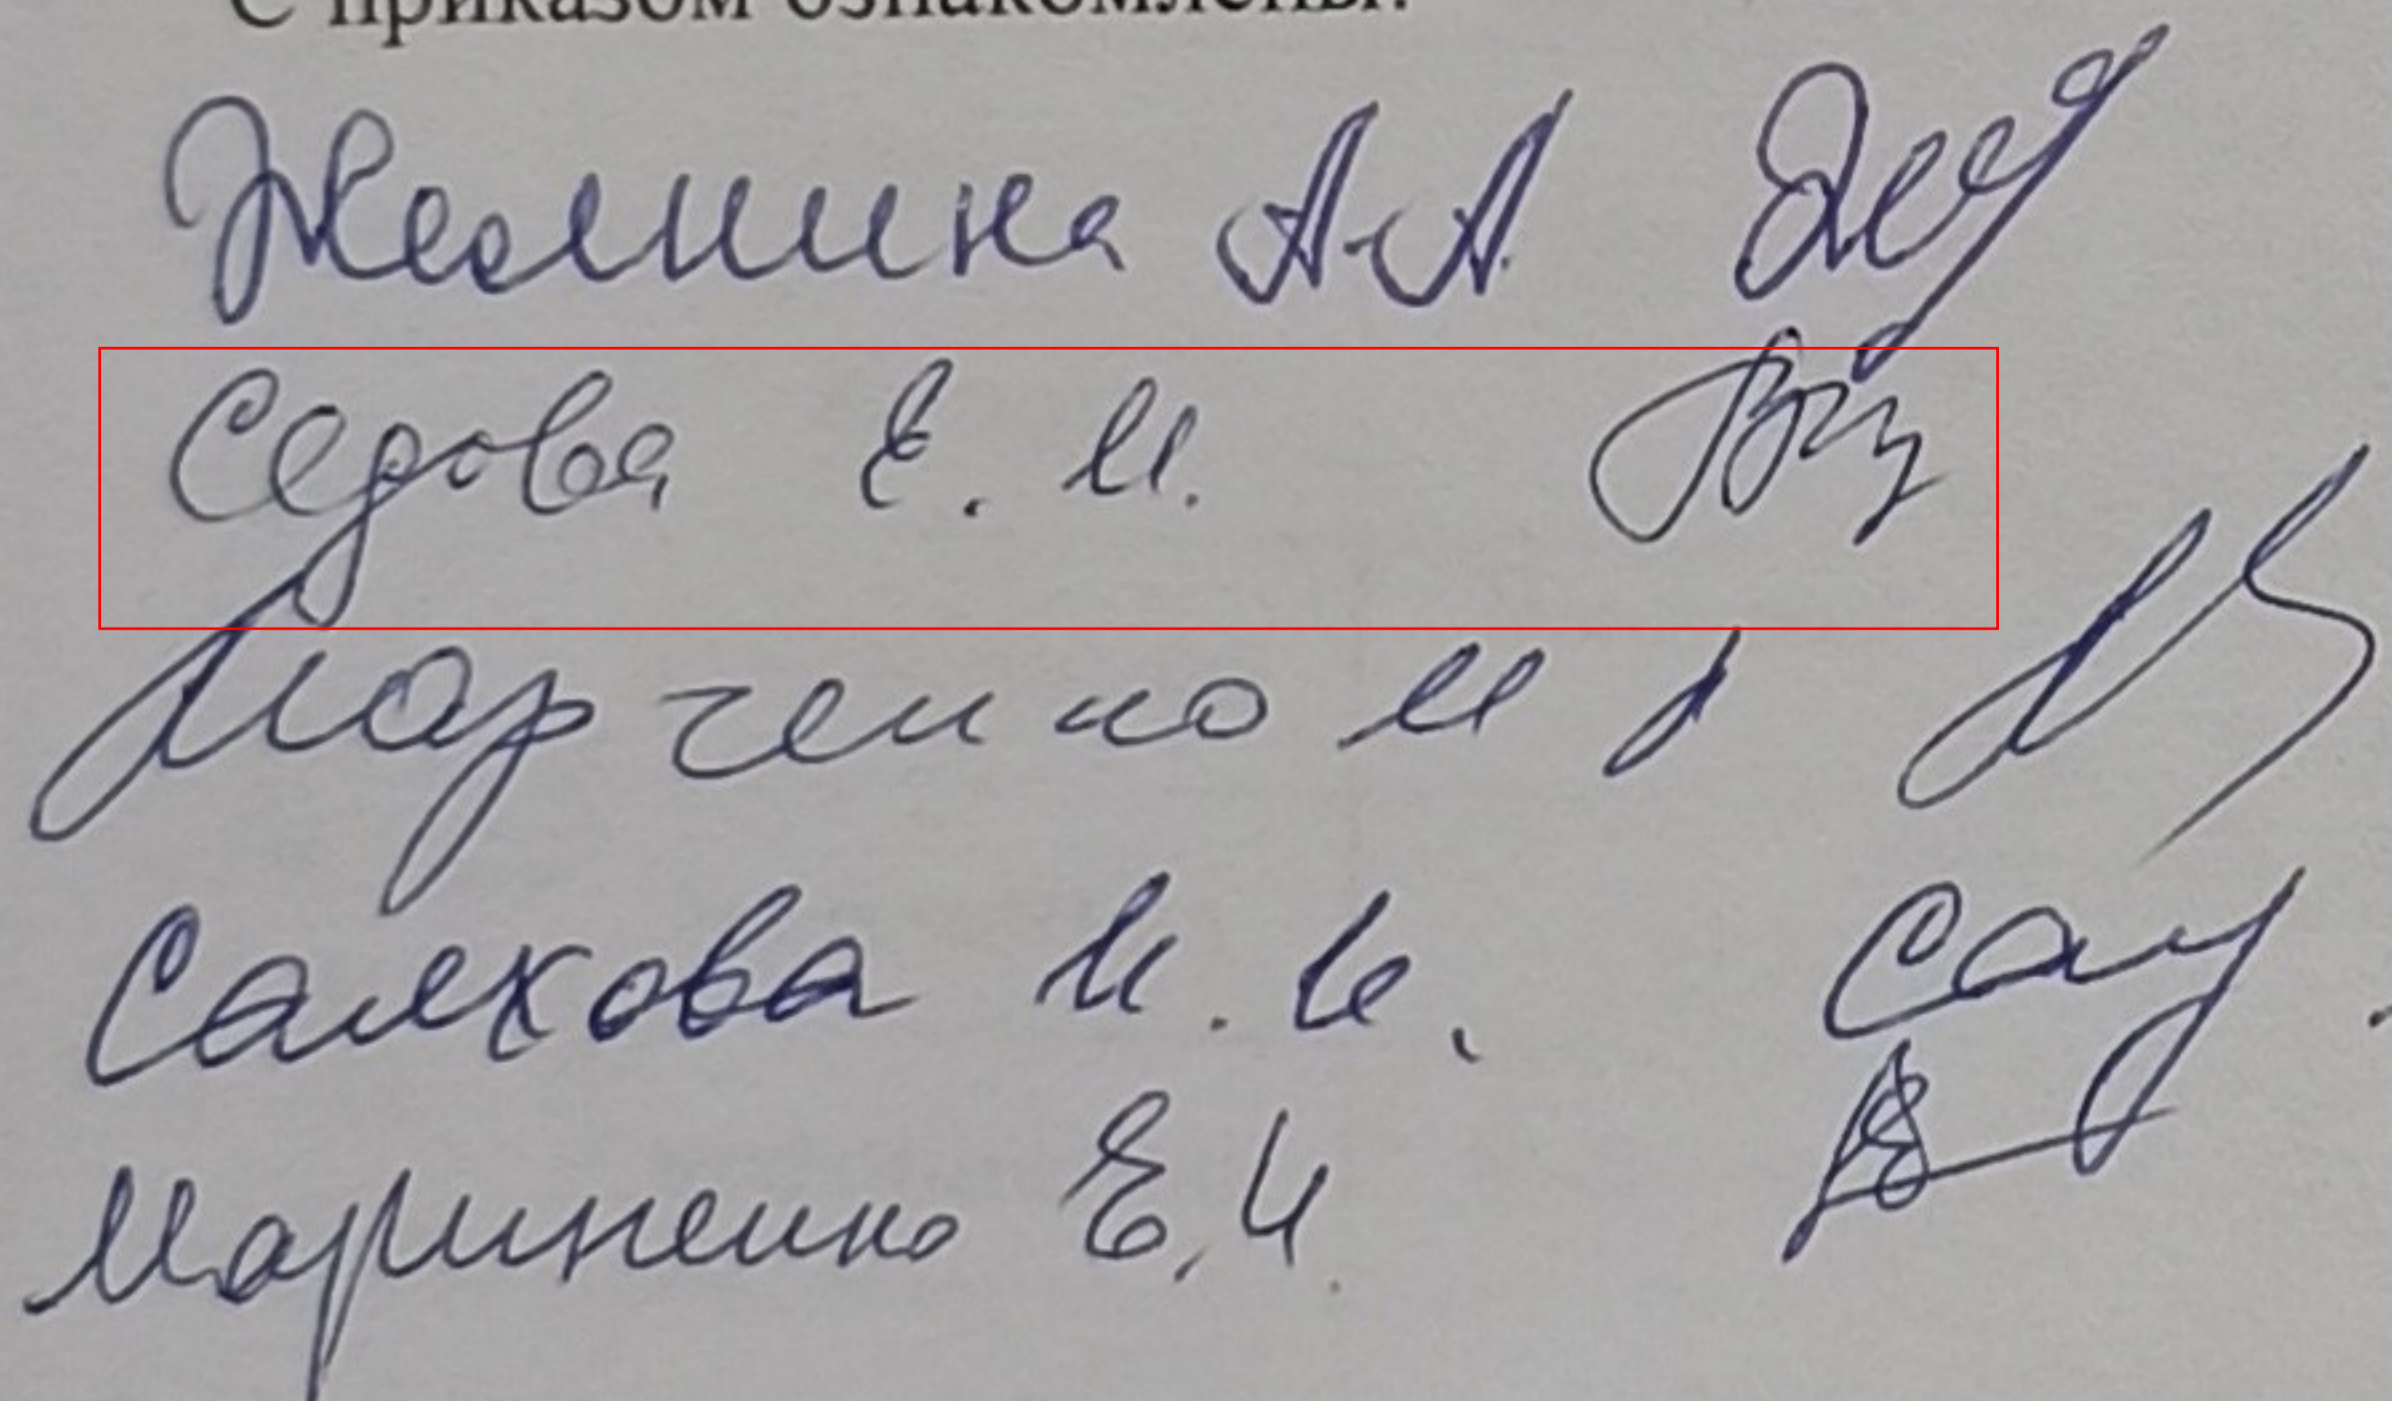 С приказом ознакомлены:
Жемнина А.А.
Седова Е. И.
Марченко И
Салхова И. И.
Мариненко Е.И.